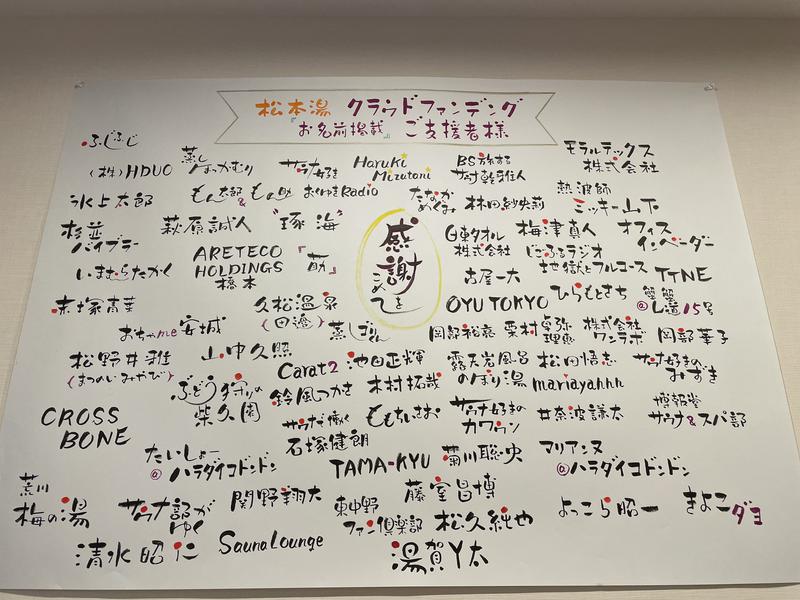 松本湯 クラウドファンディング
『お名前掲載』 ご支援者様
ふじふじ
(株)HDUO
蒸し
サウナ好き
Haruki
Mizutani
BS旅する
モラルテックス
株式会社
氷上太郎
もん太郎&もん助
おくゆきRadio
たなか
めぐみ
林田紗央莉
熱波師
ミッキー山下
杉並
バイブラー
萩原誠人
"琢海"
感謝
をこめて
日東タオル
株式会社
梅津真人
オフィス
インベーダー
いまむらたかく
ARETECO
HOLDINGS
橋本
『筋』
古屋一大
地獄とフルコース
TTNE
赤塚高菜
おちゃme安城
久松温泉
(田邊)
蒸しぱりん
OYU TOKYO
ひらもとさち
蟹蟹
@し道15号
岡部裕亮
栗村
株式会社
ワンラボ
岡部華子
松野井雅
(まつのいみやび)
山中久照
Carat2
池田正輝
露天岩風呂
のぼり湯
松田悟志
サウナ好きの
みずき
ぶどう狩りの
柴久園
鈴風つかさ
木村拓哉
mariayahhh
CROSS
BONE
サウナで働く
石塚健朗
ももちいさお
サウナ好きの
カワウソ
井奈波謙太
博報堂
サウナ&スパ部
たいしょー
@ハラダイコドンドン
TAMA-KYU
菊川聡央
マリアンヌ
@ハラダイコドンドン
荒川
梅の湯
サウナ部が
ゆく
関野翔大
東中野
ファン倶楽部
藤室昌博
松久純也
よっこら昭一
きよこダヨ
清水昭仁
Sauna Lounge
湯賀Y太